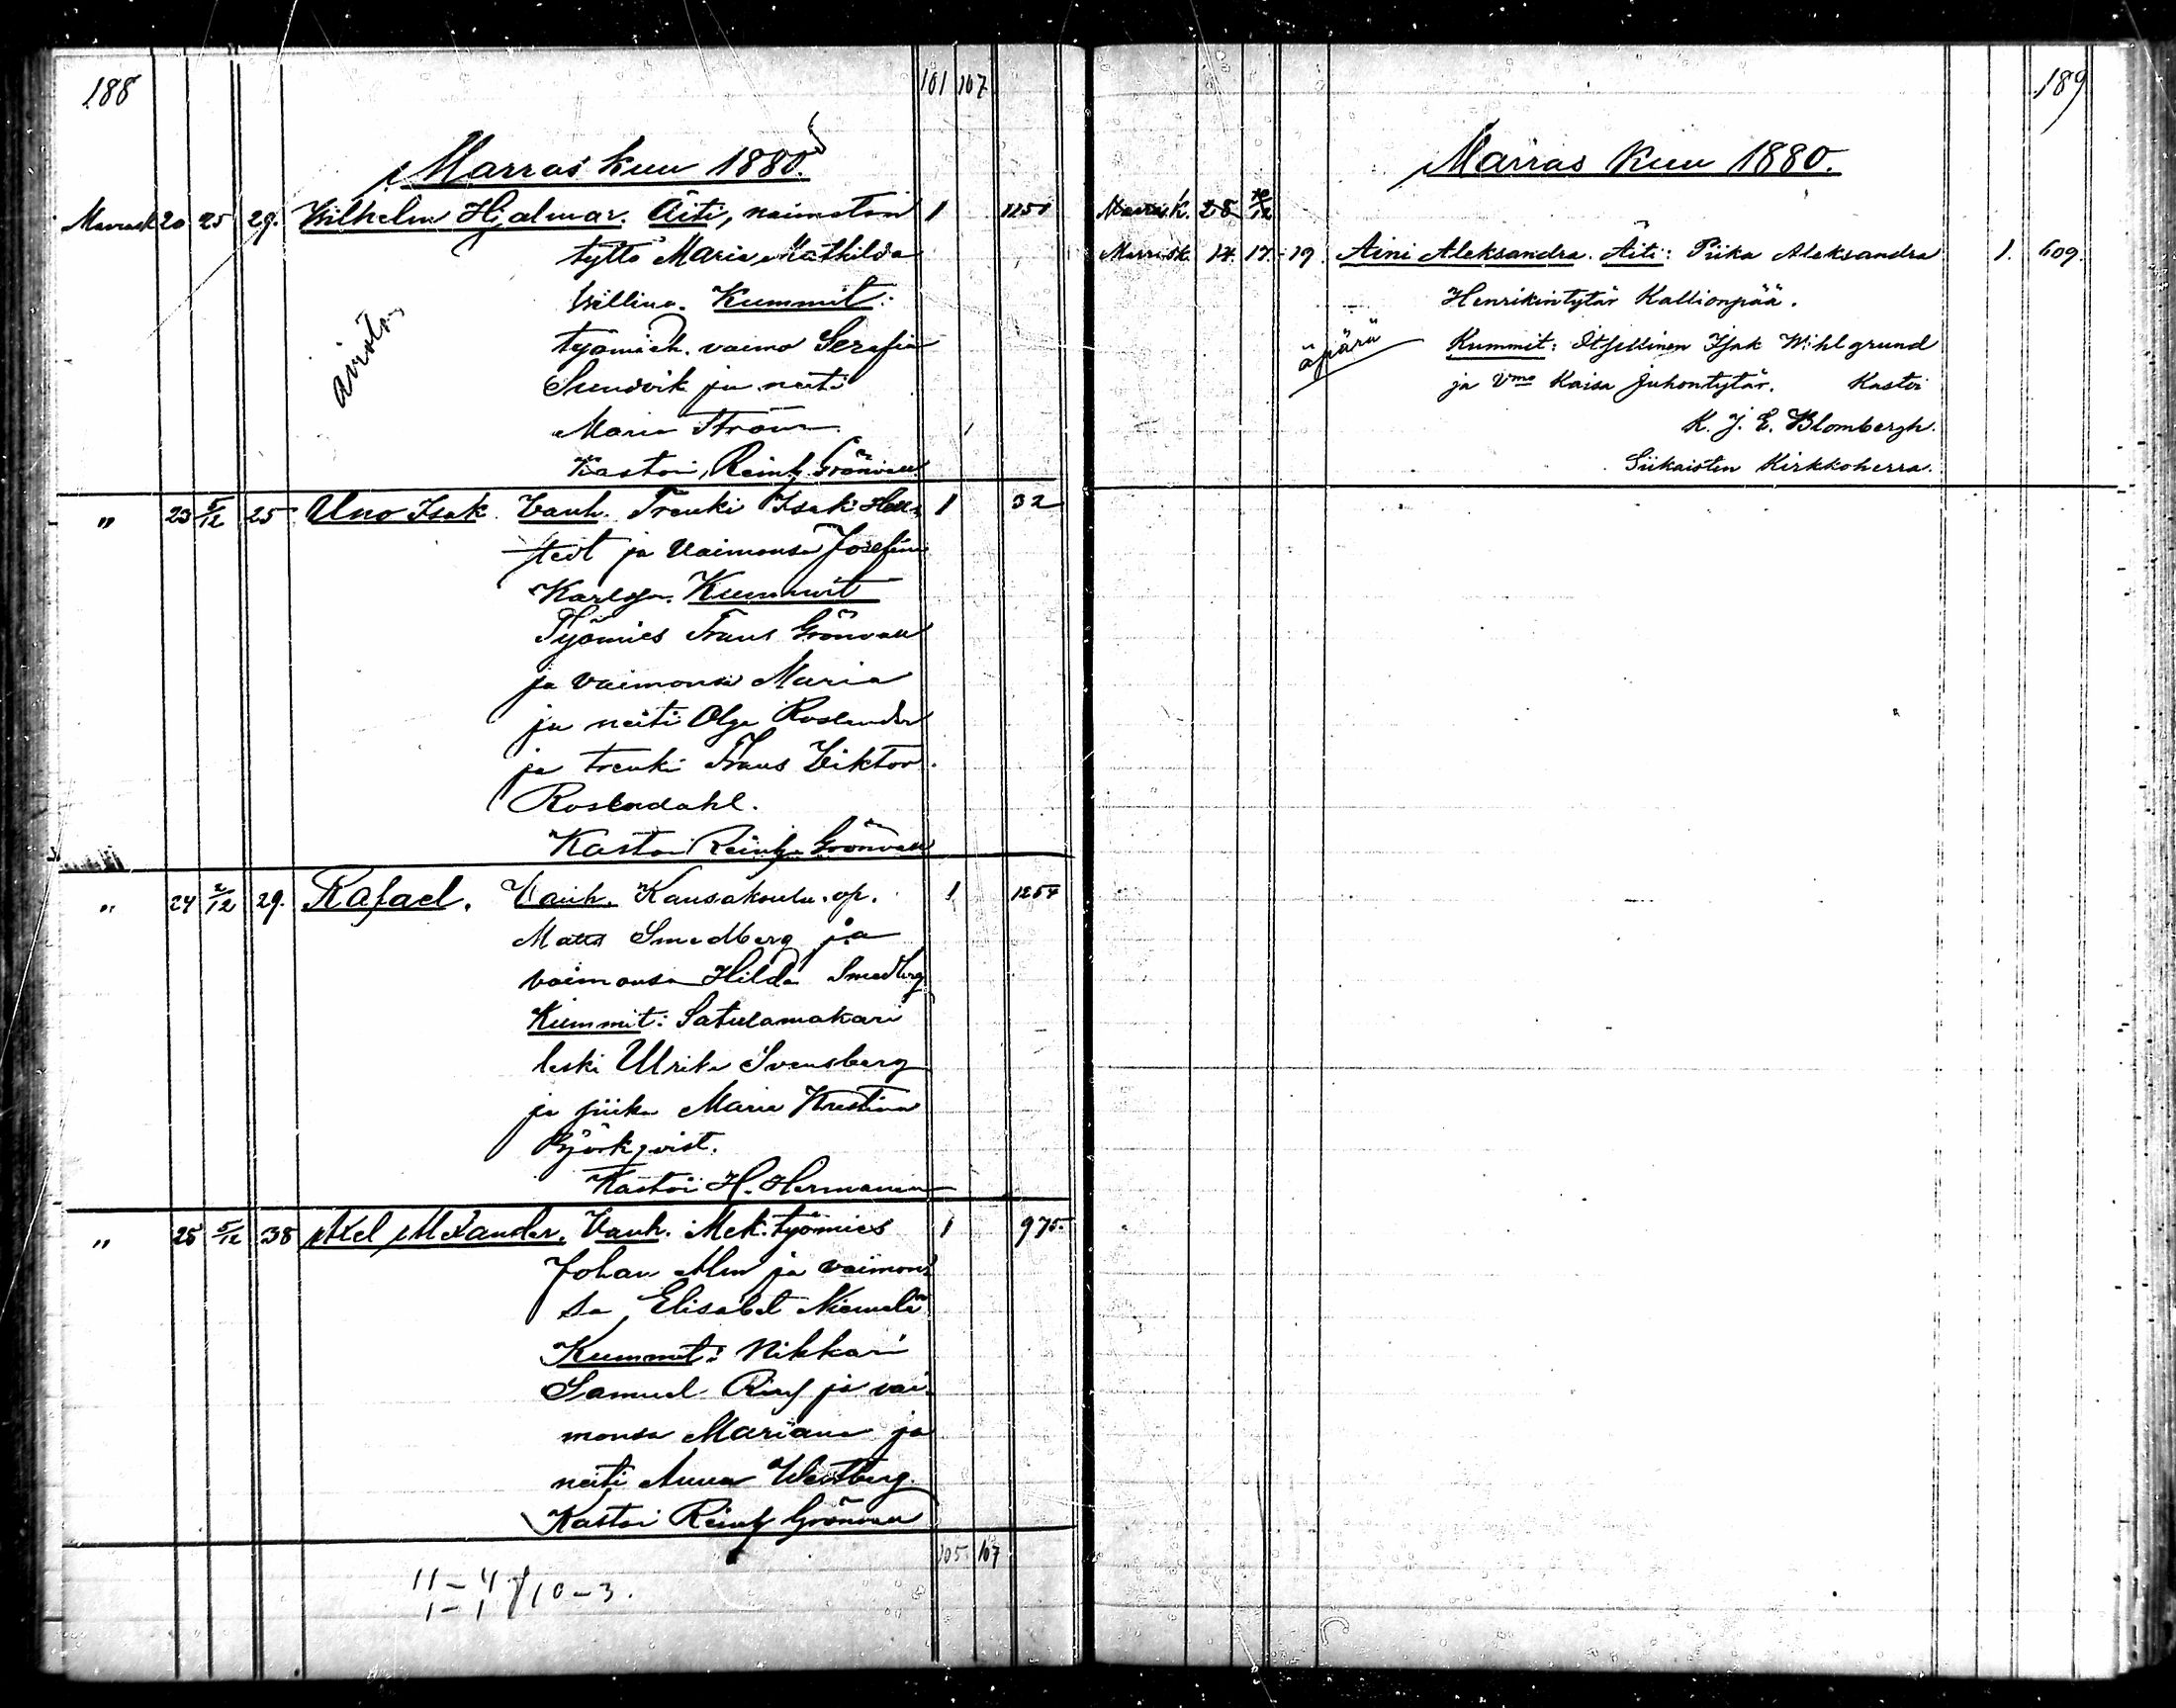 188 101 107
Marraskuu 1880.
Marrask 20 25 29. Wilhelm Hjalmar. Äiti, naimaton 1 1251
tyttö Maria Mathilda
Willina. Kummit:
työmieh. vaimo Serafia
Sundvik ja neiti
Maria Ström
Kastoi, Reinh. Grönvall
" 23 5/12 25 Uno Isak. Vanh. Trenki Isak Hell- 1 32
stedt ja Vaimonsa Josefina
Kummit
Työmies Frans Grönvall
ja vaimonsa Maria
ja neiti Olga Roslander
ja trenki Frans Viktor
Rosendahl.
Kastoi Reinh. Grönvall
" 24 2/12 29. Rafael. Vanh. Kansakoulu. op. 1 1254
Matts Smedberg ja
vaimonsa Hilda Smedberg
Kummit: Satulamakari
leski Ulrika Svensberg
ja piika Maria Kristina
Björkqvist.
Kastoi H. Hermanson
" 25 5/12 38 Axel Alexander. Vanh. Mek. työmies 1 975.
Johan Alen ja vaimon-
sa Elisabet Niemelä
Kummit: Nikkari
Samuel Ring ja vai-
monsa Mariana ja
neiti Anna Westberg.
Kastoi Reinh Grönvall
105 107
11-4 10-3.
1-1
189
Marraskuu 1880.
Marrask. 28
Marrask. 14. 17. 19. Aini Aleksandra. Äiti: Piika Aleksandra 1. 609.
Henrikintytär Kallionpää.
äpärä Kummit: Itsellinen Isak Wihlgrund
ja Vmo Kaisa Juhontytär. Kastoi
K. J. E. Blombergh.
Siikaisten Kirkkoherra.